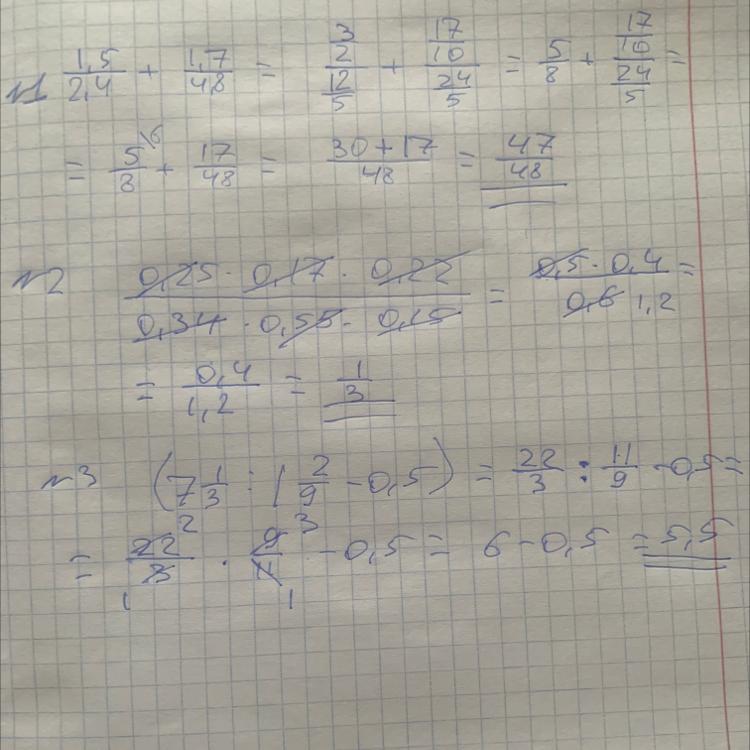 №1 1,5/2,4 + 1,7/4,8 = (3/2)/(12/5) + (17/10)/(24/5) = 5/8 + (17/10)/(24/5) =
= 5\6/8 + 17/48 = (30+17)/48 = 47/48
№2 (0,25 · 0,17 · 0,22)/(0,34 · 0,55 · 0,15) = (0,5 · 0,4)/(0,6 1,2) =
= 0,4/1,2 = 1/3
№3 (7 1/3 : 1 2/9 - 0,5) = 22/3 : 11/9 - 0,5 =
= 22 2/3 1 · 9 3/11 1 - 0,5 = 6 - 0,5 = 5,5